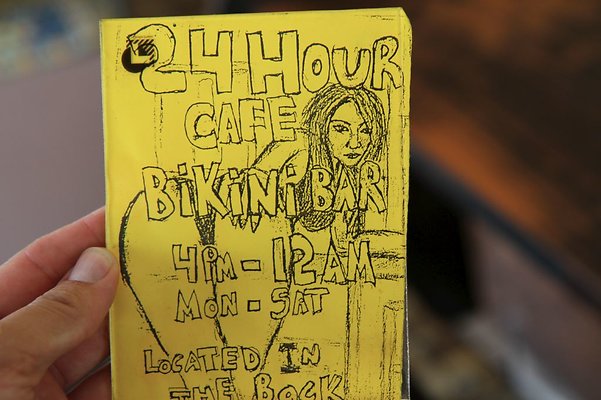 24 HOUR
CAFE
BiKiNi BAR
4PM - 12AM
MON - SAT
LOCATED IN
THE BACK